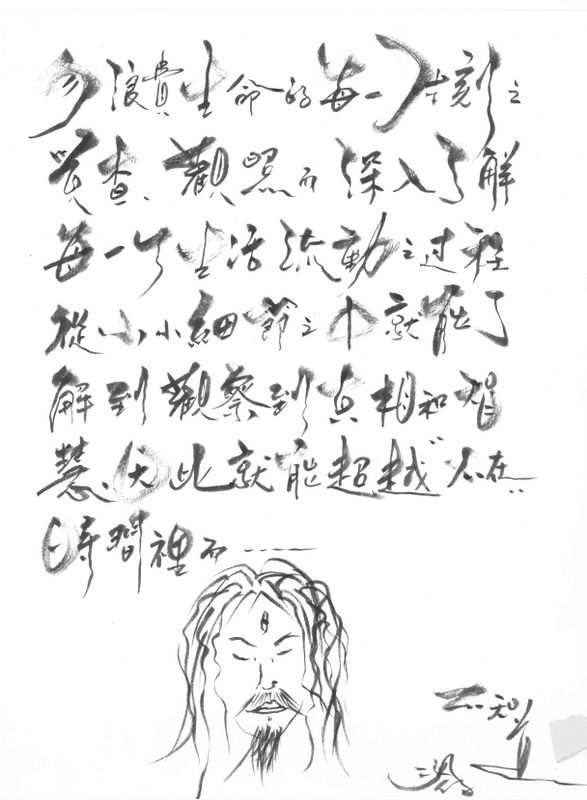 勿浪費生命的每一刻之
覺查、觀照而深入了解
每一生活流動之過程
從小小細節之中就能了
解到觀察到真相和智
慧、因此就能超越不在
時間裡而......
不知道